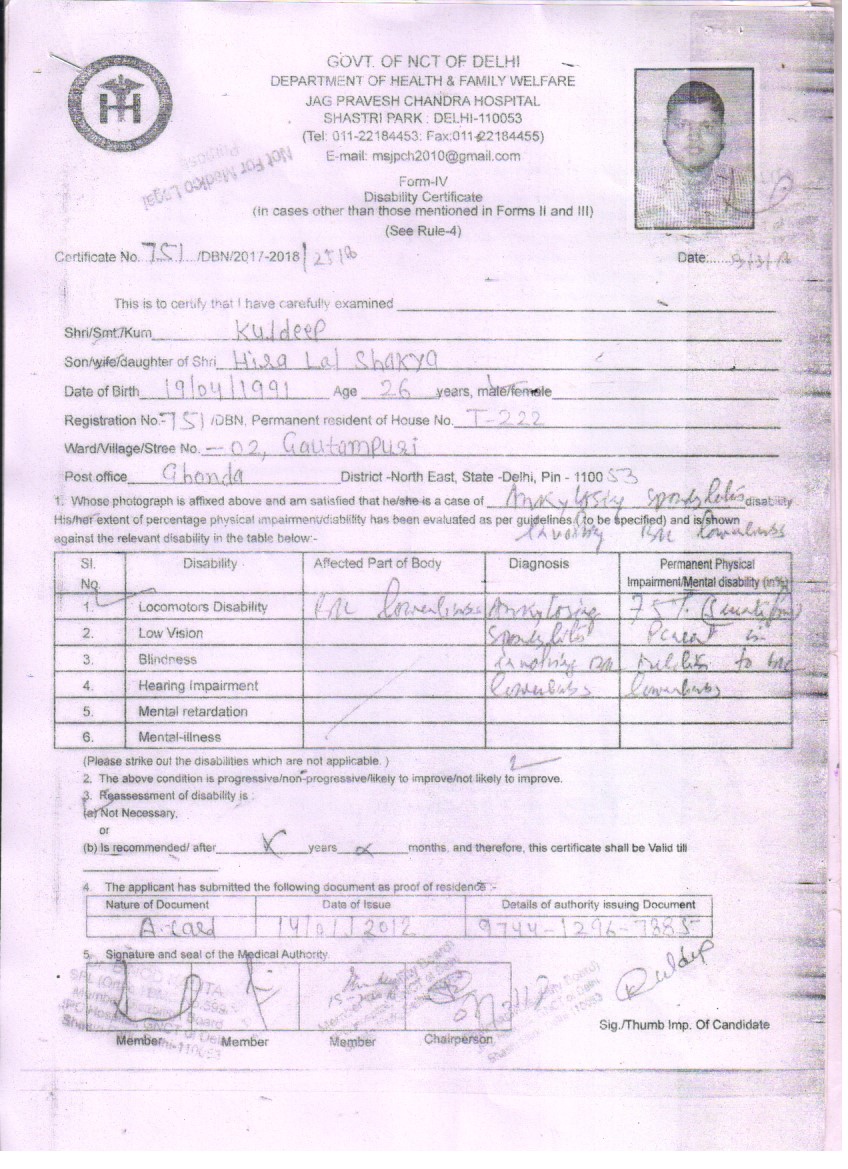 GOVT. OF NCT OF DELHI
DEPARTMENT OF HEALTH & FAMILY WELFARE
JAG PRAVESH CHANDRA HOSPITAL
SHASTRI PARK : DELHI-110053
(Tel: 011-22184453; Fax:011-22184455)
E-mail: msjpch2010@gmail.com
Not For Medico Legal
Purpose
Form-IV
Disability Certificate
(In cases other than those mentioned in Forms II and III)
(See Rule-4)
Certificate No. 751 /DBN/2017-2018
Date:
This is to certify that I have carefully examined
Shri/Smt./Kum Kuldeep
Son/wife/daughter of Shri Hira Lal Shakya
Date of Birth 19/04/1991 Age 26 years, male/female
Registration No.- 751 /DBN, Permanent resident of House No. T-222
Ward/Village/Stree No. - 02, Gautampuri
Post office Ghonda District -North East, State -Delhi, Pin - 1100 53
1. Whose photograph is affixed above and am satisfied that he/she is a case of Ankylosing Spondylitis disability
His/her extent of percentage physical impairment/disability has been evaluated as per guidelines ( to be specified) and is shown
involving lowerlimbs
against the relevant disability in the table below:-
Sl. No. Disability Affected Part of Body Diagnosis Permanent Physical Impairment/Mental disability (in%)
1. Locomotors Disability lowerlimbs Ankylosing 75%
2. Low Vision
3. Blindness involving
4. Hearing Impairment lowerlimbs lowerlimbs
5. Mental retardation
6. Mental-illness
(Please strike out the disabilities which are not applicable. )
2. The above condition is progressive/non-progressive/likely to improve/not likely to improve.
3. Reassessment of disability is :
(a) Not Necessary,
or
(b) Is recommended/ after X years months, and therefore, this certificate shall be Valid till
4. The applicant has submitted the following document as proof of residence :-
Nature of Document Date of Issue Details of authority issuing Document
A.card 14/01/2012 9744-1296-7885
5. Signature and seal of the Medical Authority.
Kuldip
Sig./Thumb Imp. Of Candidate
Member Member Member Chairperson